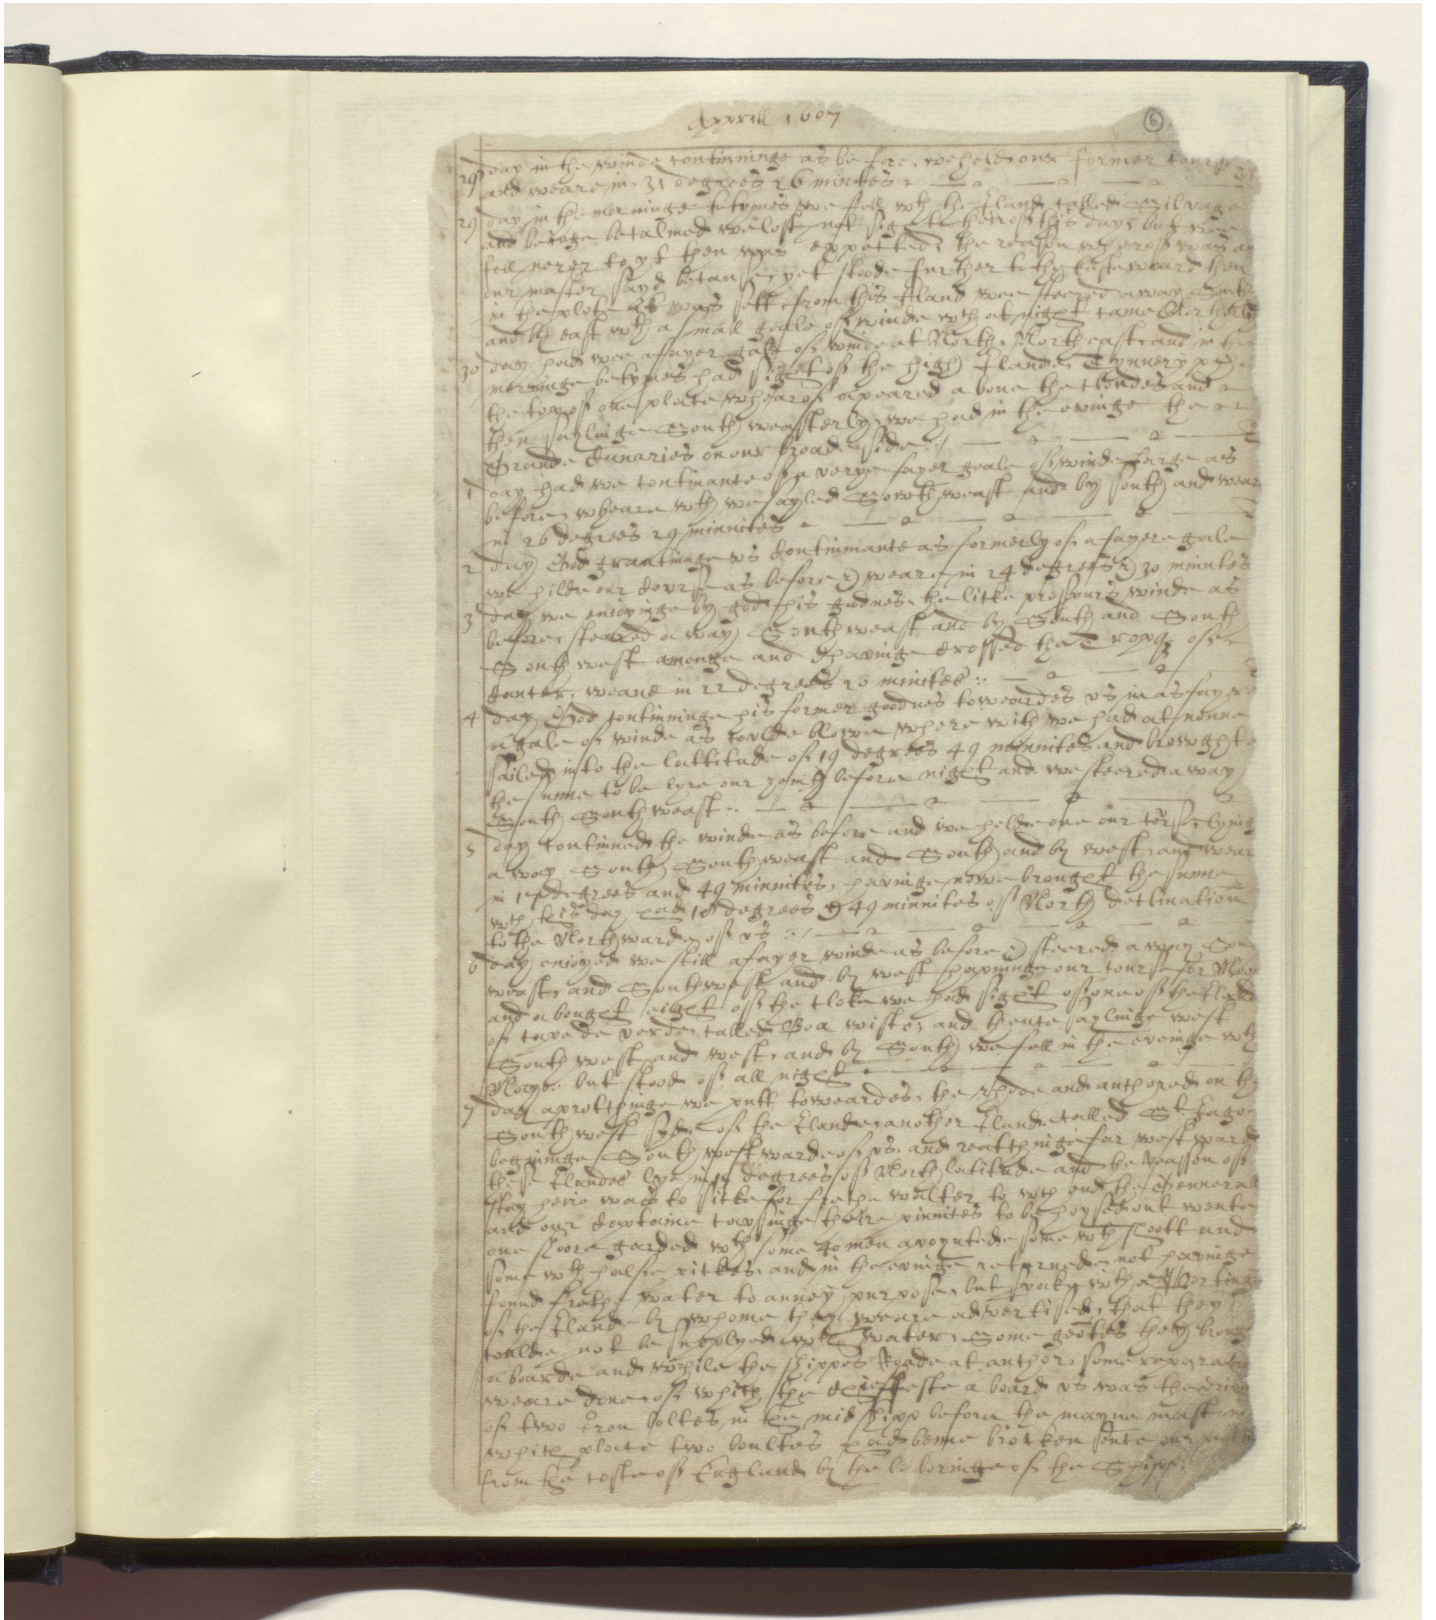 Aprill 1607
6
29 day in the winde continuinge as before, we held our former course
and weare in 31 degrees 26 minutes
29 day in the morninge betymes we fell wth the Iland called Salvage
and beinge becalmed we lost not sight thereof this day, but
fell nerer to yt then was expected, the reason wherof was as
our master sayd because yet stode further to the Eastward then
in the plote yt was sett, from this Iland wee steered away South
and by east wth a small geale of winde wch at night came Northerly
30 day had wee a fayer gale of winde at North, North east, and in the
morninge betymes had sight of the high Ilande Tennery
the top of one place whearof apeared a bove the cloudes and
then saylinge South weasterly, we had in the eveninge the
Grande Cunaries on our broad side
1 day had we continance of a verye fayer geale of winde large as
before, wheare wth we sayled Sowth weast and by south and wear
in 26 degrees 29 minnites
2 day God grauntinge us continuance as formerly of a fayere gale
we hilde our course as before & weare in 24 degrees & 30 minutes
3 day we enioyinge by god his goodnes the licke prosperus winde as
before, steared away Southweast and by South and South
South west amonge and havinge crossed the Tropiq of
Canter, weare in 22 degrees 20 minites
4 day God continninge his former goodnes towardes us in as fayer
a gale of winde as coulde blowe where with we had at nonne
sailed into the lattitude of 19 degrees 49 minnites and browght
the sunne to be lyre our zenith before night and we steered away
South South weast
5 day continued the winde as before and we helde one our course lyinge
a way South, South weast and South and by west, and wear
in 17 degrees and 49 minnites, havinge nowe brought the sunne
wch this day had 18 degrees & 49 minnites of North declination
to the Northwarde of us
6 day enioyed we still a fayer winde as before & steered a way South
weast, and Southwest and by west havinge our course for
and a bought eight of the clocke we had sight of one of the Ilands
of cape de verde called Boa wisto, and hence saylinge west
South west and west, and by South we fell in the eveninge wth
Mayo but stood of all night
7 day aprotchinge we putt towardes the Rhode and anchored on the
South west syde of the Ilande, another Ilande called St Iago
beginninge South westwarde of us, and reatchinge far westward
these Ilandes lye in 15 degrees of North latitude and the reason of
stay heire was to sicke for freshe water to wch end the Gennerall
and our Captaine caussinge theire pinnites to be hoysed out wente
one shore garded wth some 40 men apoynted some wth shott and
some wth halfe pickes, and in the eveninge returned, not havinge
found freshe water to anney purpose, but spake with a
of the Ilande by whome they weare advertised, that they
coulde not be suplyed wth water, Some geotes they brought
a boarde and while the shippes Roade at anchor, some
weare done of which the cheiffeste a board us was the
of two Iron boltes in the mid shipp before the mayne mast in
which place two boultes had benne brocken sence our
from the coste of England by the laboringe of the Shipp